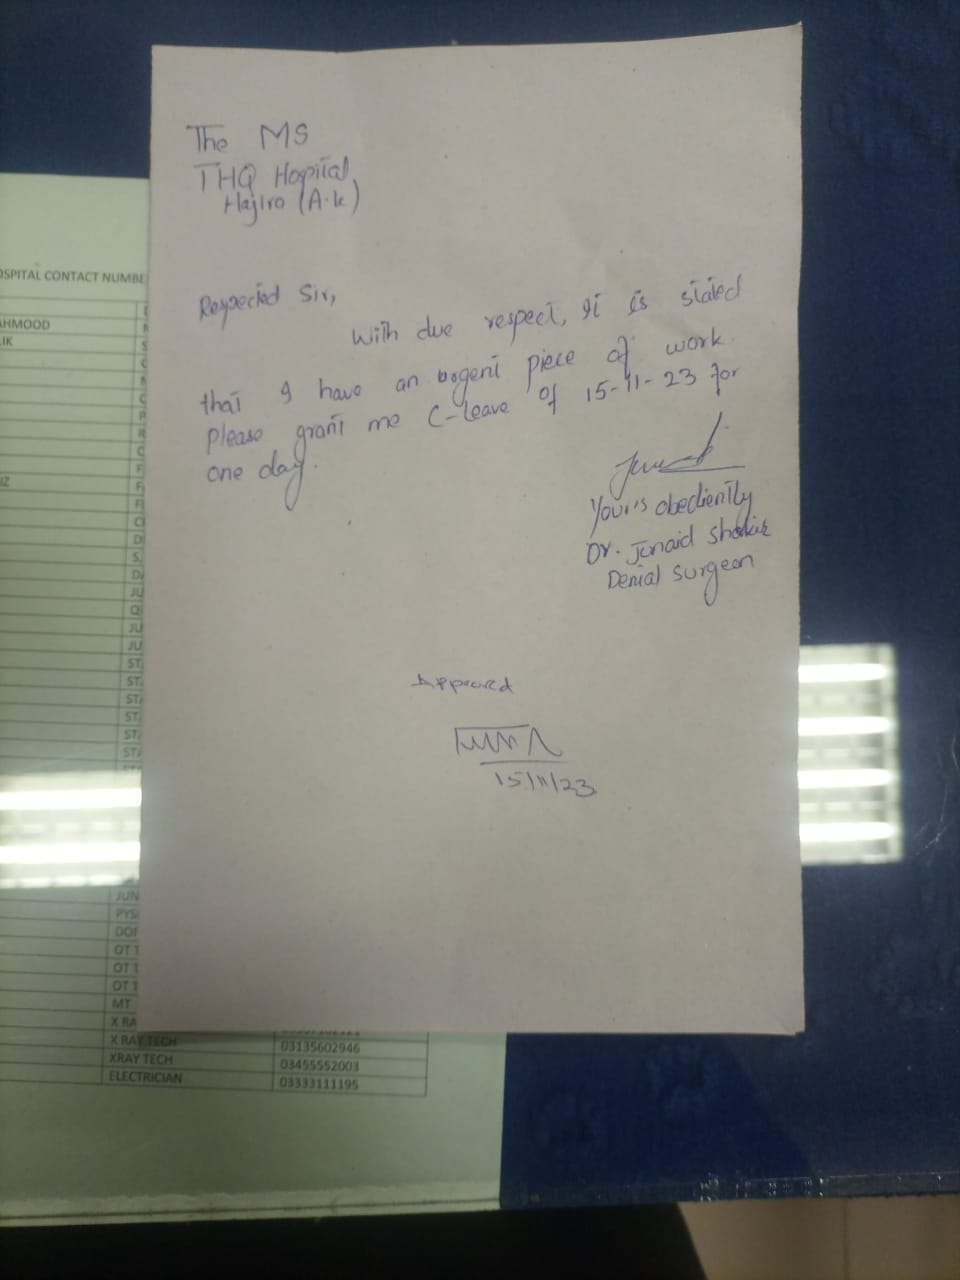 The MS
THQ Hopital,
Hajira (A.k)
Respected Sir,
With due respect, It is stated
that I have an urgent piece of work.
Please grant me C-Leave of 15-11-23 for
one day.
Your's obediently
Dr. Junaid Shakir
Dental Surgeon
Approved
15/11/23
OSPITAL CONTACT NUMBE
AHMOOD
LIK
IZ
JU
JU
JU
ST
ST
STA
ST
ST
STA
JUN
PYS
DOI
OT T
OT T
OT T
MT
X RA
X RAY TECH 03135602946
XRAY TECH 03455552003
ELECTRICIAN 03333111195